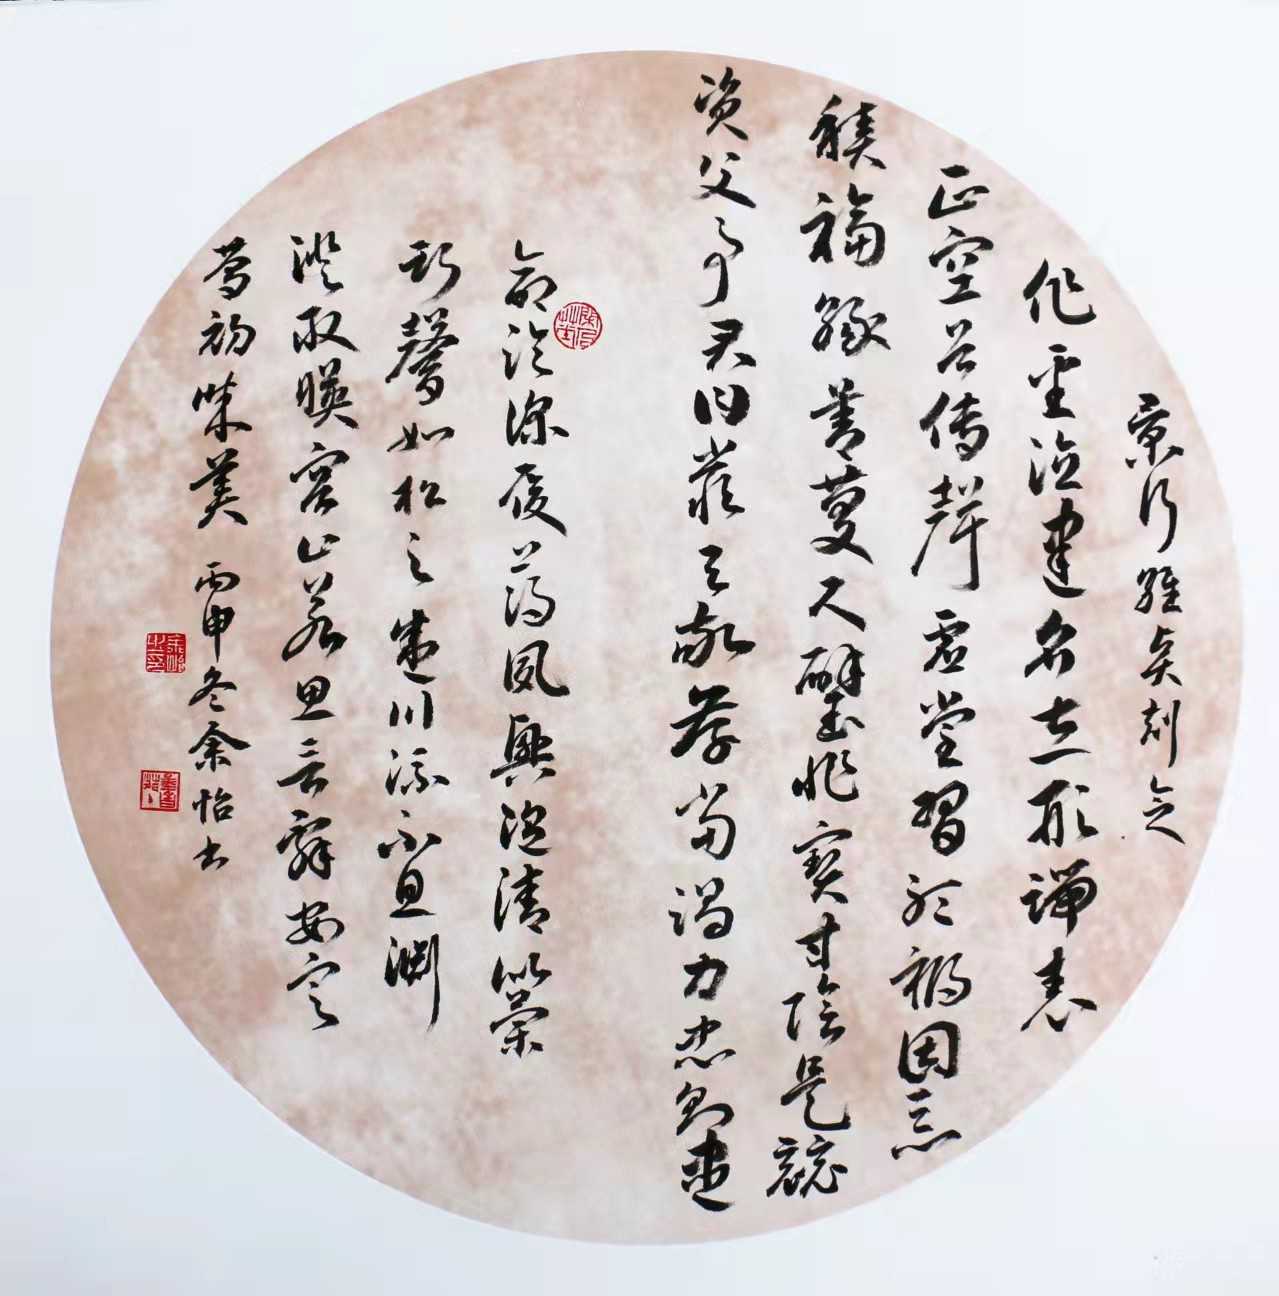 景行維賢剋念
作聖德建名立形端表
正空谷傳聲虛堂習聽禍因惡
積福緣善慶尺璧非寶寸陰是競
資父事君曰嚴與敬孝當竭力忠則盡
命臨深履薄夙興溫凊似蘭
斯馨如松之盛川流不息淵
澄取暎容止若思言辭安定
篤初誠美 丙申冬余怡书
余怡之印